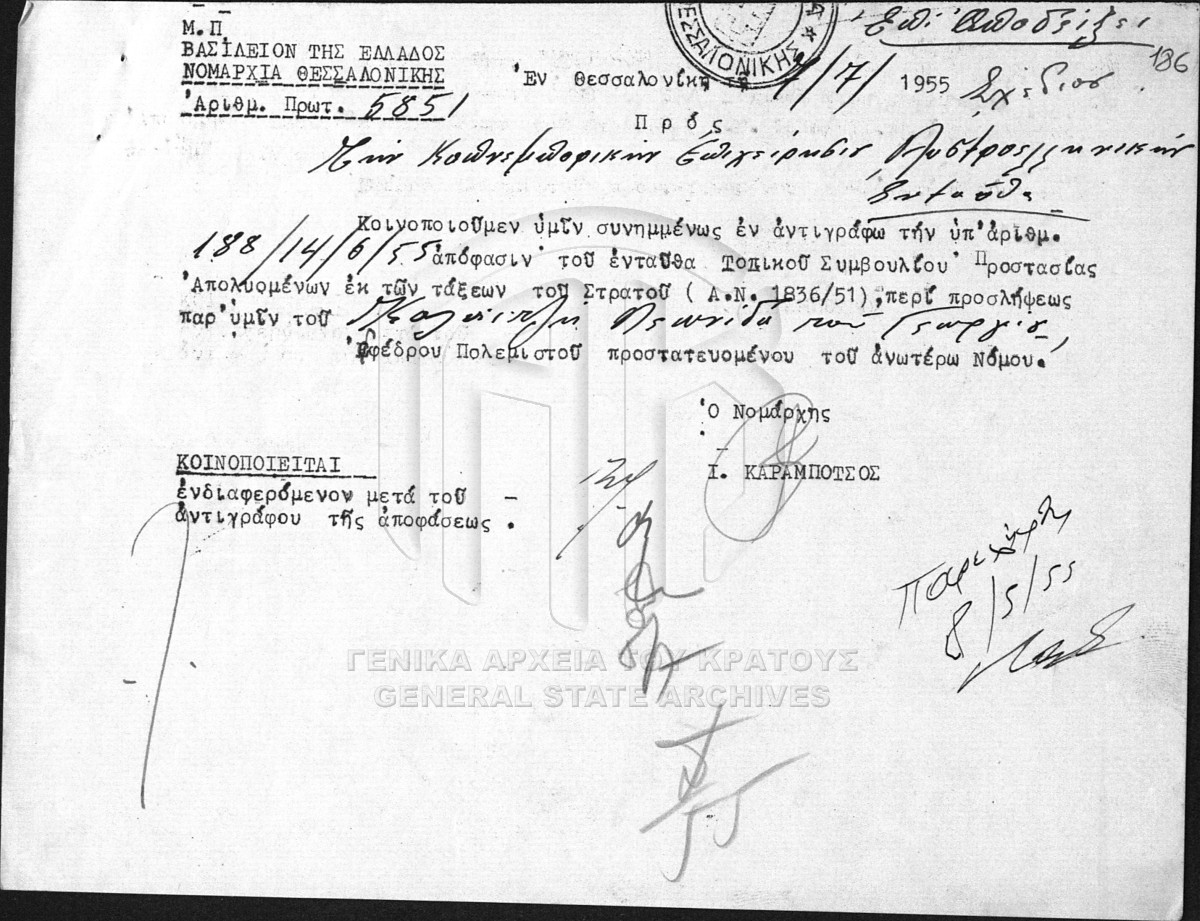 Μ.Π
ΒΑΣΙΛΕΙΟΝ ΤΗΣ ΕΛΛΑΔΟΣ
ΝΟΜΑΡΧΙΑ ΘΕΣΣΑΛΟΝΙΚΗΣ
Ἀριθμ. Πρωτ. 5851
ΘΕΣΣΑΛΟΝΙΚΗΣ
Ἐπί ἀποδείξει
186
Ἐν Θεσσαλονίκῃ /7/ 1955
Σχέδιον
Πρός
Τήν Καπνεμπορικήν Ἐπιχείρησιν Αυστροελληνικήν
Ἐνταῦθα
Κοινοποιοῦμεν ὑμῖν συνημμένως ἐν ἀντιγράφω τήν ὑπ'ἀριθμ.
188/14/6/55 ἀπόφασιν τοῦ ἐνταῦθα Τοπικοῦ Συμβουλίου Προστασίας
Ἀπολυομένων ἐκ τῶν τάξεων τοῦ Στρατοῦ ( Α.Ν. 1836/51), περί προσλήψεως
παρ'ὑμῖν τοῦ Λεωνίδα τοῦ Γεωργίου,
Ἐφέδρου Πολεμιστοῦ προστατευομένου τοῦ ἀνωτέρω Νόμου.
Ὁ Νομάρχης
Ι. ΚΑΡΑΜΠΟΤΣΟΣ
ΚΟΙΝΟΠΟΙΕΙΤΑΙ
ἐνδιαφερόμενον μετά τοῦ –
ἀντιγράφου τῆς ἀποφάσεως .
8/5/55
ΓΕΝΙΚΑ ΑΡΧΕΙΑ ΤΟΥ ΚΡΑΤΟΥΣ
GENERAL STATE ARCHIVES